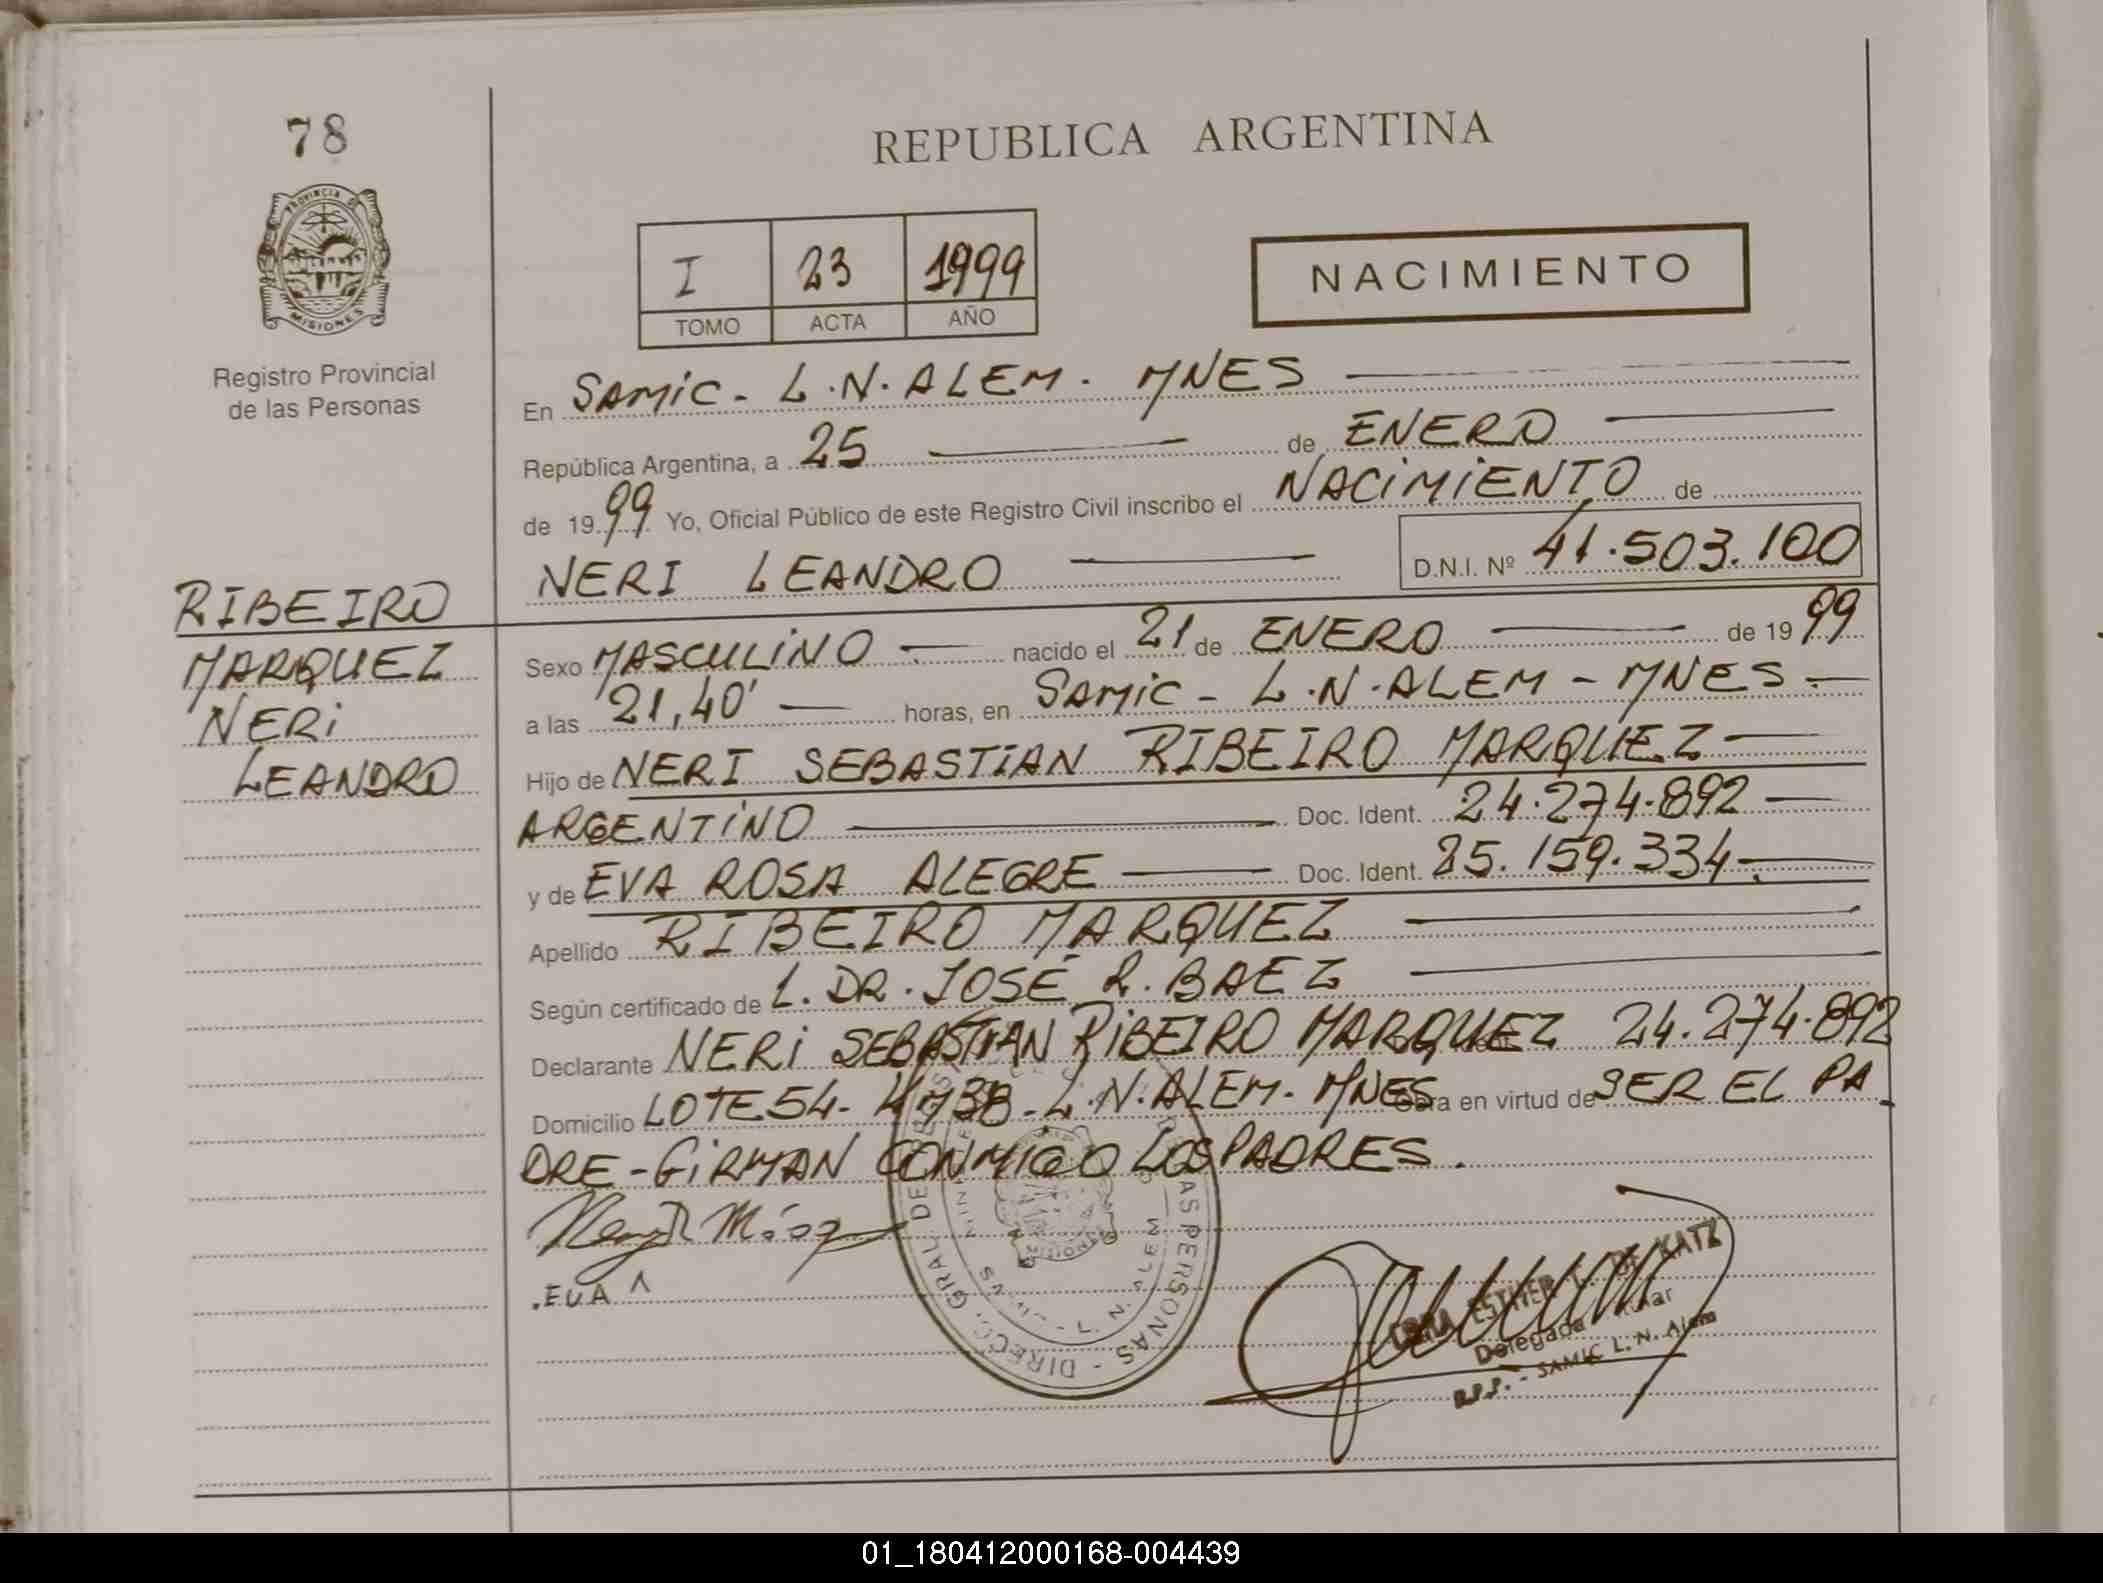 78
REPUBLICA ARGENTINA
PROVINCIA DE
MISIONES
Registro Provincial
de las Personas
I 23 1999
TOMO ACTA AÑO
NACIMIENTO
En SAMIC - L.N. ALEM - MNES
República Argentina, a 25 de ENERO
de 1999 Yo, Oficial Público de este Registro Civil inscribo el NACIMIENTO de
NERI LEANDRO D.N.I. Nº 41.503.100
RIBEIRO
MARQUEZ
NERI
LEANDRO
Sexo MASCULINO nacido el 21 de ENERO de 1999
a las 21,40' horas, en SAMIC - L.N. ALEM - MNES -
Hijo de NERI SEBASTIAN RIBEIRO MARQUEZ
ARGENTINO Doc. Ident. 24.274.892
y de EVA ROSA ALEGRE Doc. Ident. 25.159.334
Apellido RIBEIRO MARQUEZ
Según certificado de L. DR. JOSÉ R. BAEZ
Declarante NERI SEBASTIAN RIBEIRO MARQUEZ 24.274.892
Domicilio LOTE 54 - L.N. ALEM - MNES obra en virtud de SER EL PA
DRE - GIRMAN CONMIGO LOS PADRES.
EVA A
DIREC. GRAL. DE PERSONAS
ESTHER DE KATZ
Delegada Titular
R.P.P. - SAMIC L. N. Alem
01_180412000168-004439